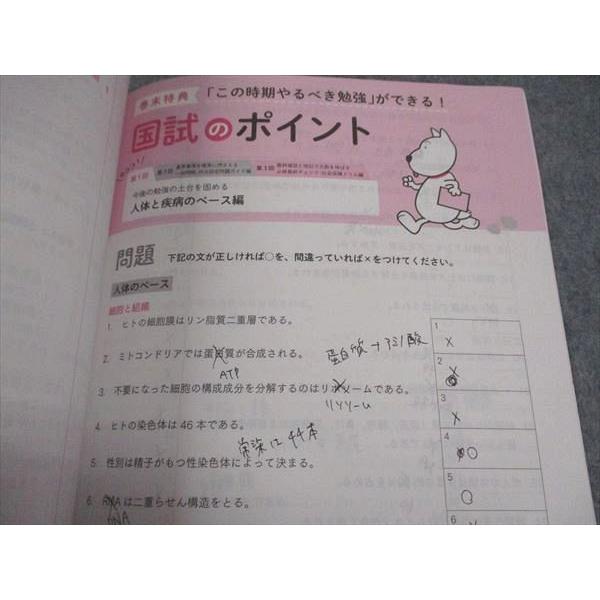 巻末特典 「この時期やるべき勉強」ができる!
国試のポイント
第1回 第2回 第3回
今後の勉強の土台を固める
人体と疾病のベース編
問題 下記の文が正しければ○を、間違っていれば×をつけてください。
人体のベース
細胞と組織
1. ヒトの細胞膜はリン脂質二重層である。
2. ミトコンドリアでは蛋白質が合成される。
蛋白質→アミノ酸
ATP
3. 不要になった細胞の構成成分を分解するのはリボソームである。
リソソーム
4. ヒトの染色体は46本である。
常染に44本
5. 性別は精子がもつ性染色体によって決まる。
6. RNAは二重らせん構造をとる。
DNA
1
×
2
×
3
×
4
○
5
○
6